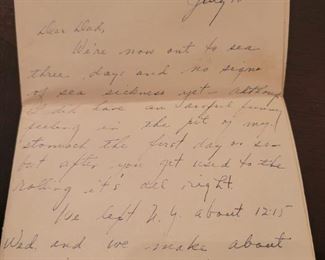 July
Dear Dad,
We're now out to sea
three days and no signs
of sea sickness yet - although
I did have an awful funny
feeling in the pit of my
stomach the first day or so
but after you get used to the
rolling it's all right.
We left N.Y. about 1215
Wed. and we make about